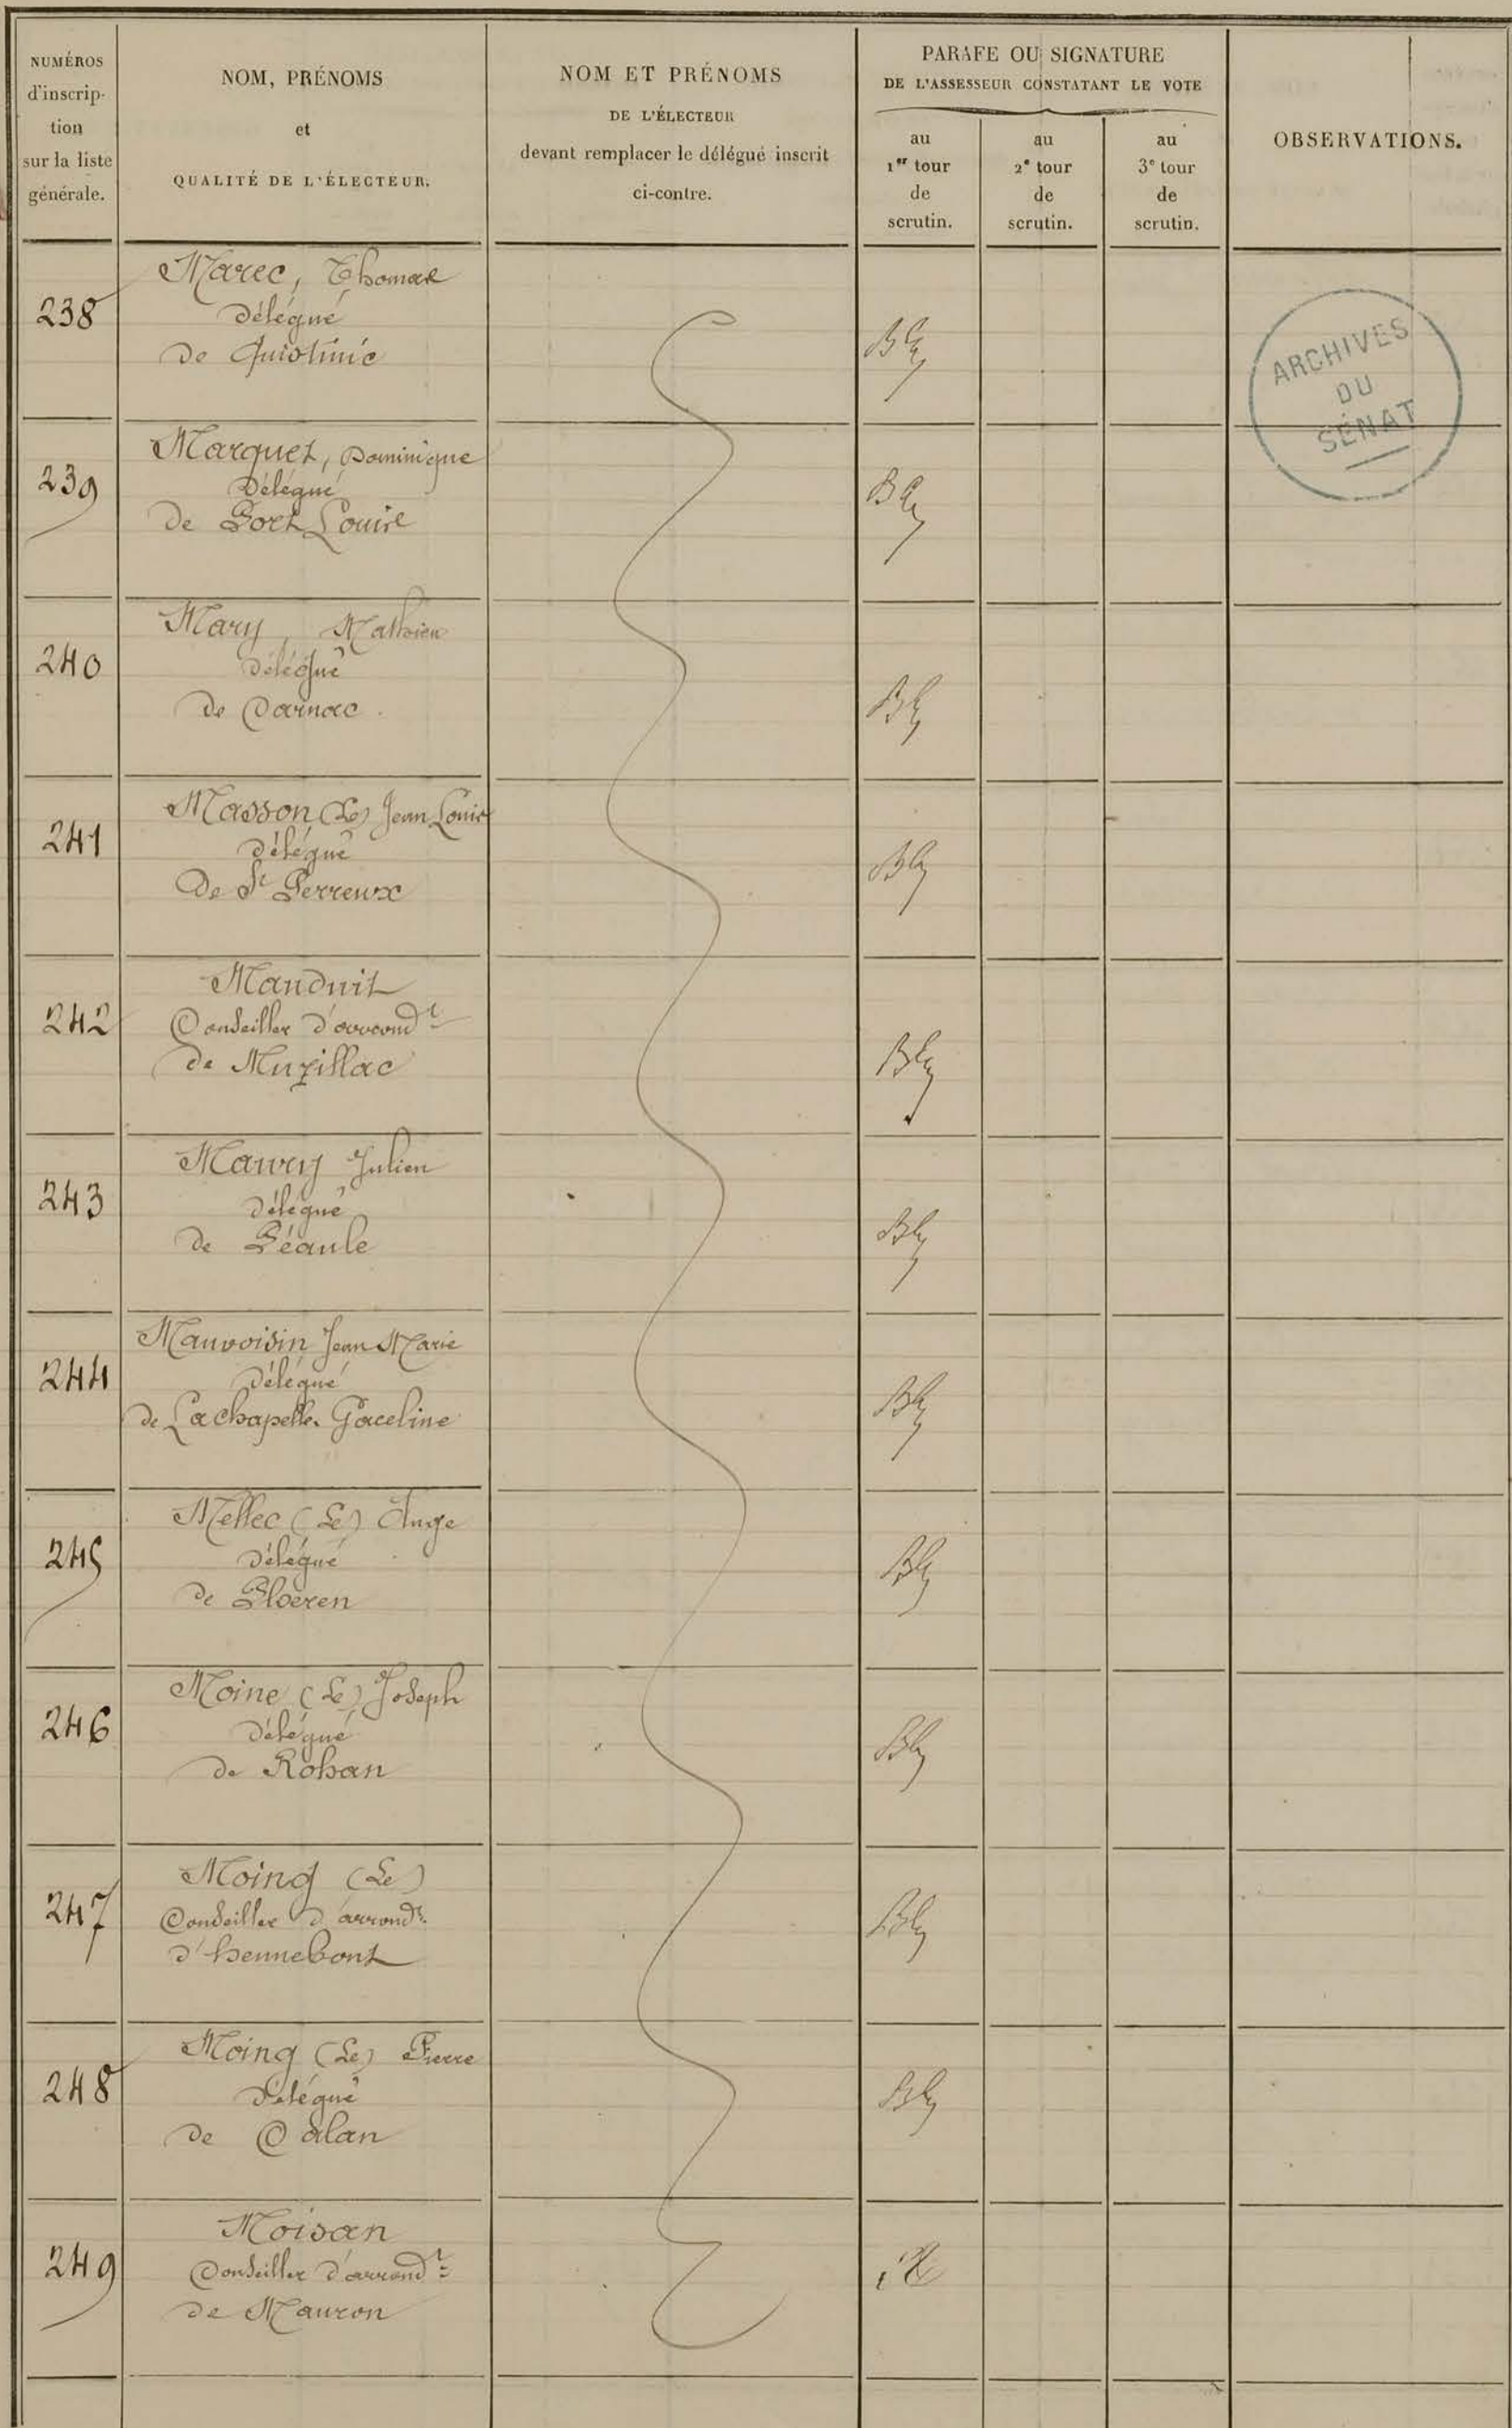 NUMÉROS
d'inscrip-
tion
sur la liste
générale.
NOM, PRÉNOMS
et
QUALITÉ DE L'ÉLECTEUR.
NOM ET PRÉNOMS
DE L'ÉLECTEUR
devant remplacer le délégué inscrit
ci-contre.
PARAFE OU SIGNATURE
DE L'ASSESSEUR CONSTATANT LE VOTE
au
1er tour
de
scrutin.
au
2e tour
de
scrutin.
au
3e tour
de
scrutin.
OBSERVATIONS.
238
Marec, Thomas
Délégué
de Quistinic
ARCHIVES
DU
SÉNAT
239
Marquet, Dominique
Délégué
de Port Louis
240
Mary, Mathieu
Délégué
de Carnac
241
Masson (Le) Jean Louis
Délégué
de St Perreux
242
Mauduit
Conseiller d'arrondt
de Muzillac
243
Maury Julien
Délégué
de Péaule
244
Mauvoisin Jean Marie
Délégué
de Lachapelle Gaceline
245
Mellec (Le) Ange
Délégué
de Ploeren
246
Moine (Le) Joseph
Délégué
de Rohan
247
Moing (Le)
Conseiller d'arrondt
d'hennebont
248
Moing (Le) Pierre
Délégué
de Calan
249
Moisan
Conseiller d'arrondt
de Mauron